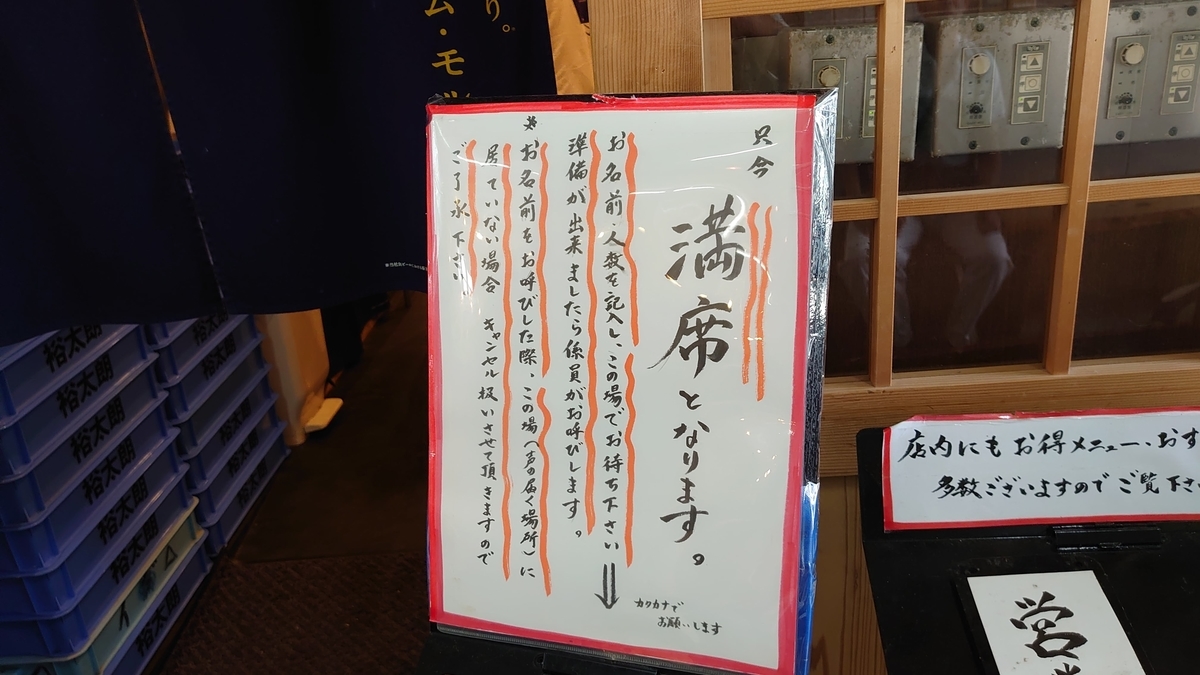 只今
満席となります。
お名前・人数を記入し、この場でお待ち下さい
準備が出来ましたら係員がお呼びします。
※お名前をお呼びした際、この場(声の届く場所)に
居ていない場合 キャンセル扱いさせて頂きますので
ご了承下さい。
カタカナで
お願いします
店内にもお得メニュー、おす
多数ございますのでご覧下さ
営業
り。
ム・モ
裕太朗
裕太朗
裕太朗
裕太朗
裕太朗
裕太朗
裕太朗
裕太朗
裕太朗
裕太朗
裕太朗